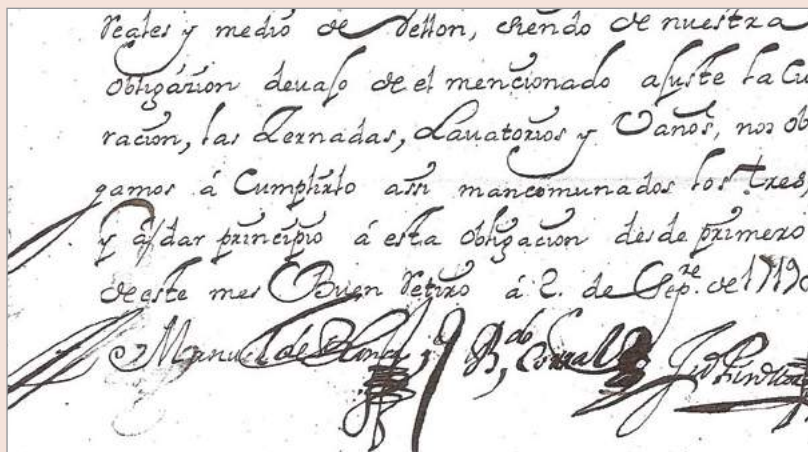 reales y medio de vellon, siendo de nuestra
obligàzion devaso de el mencionado asuste la Cu
racion, las Zernadas, Lauatorios y Vaños, nos ob
gamos à Cumplirlo assi mancomunados los tres,
y à dar principio à esta obligacion desde primero
de este mes Buen Retiro à 2. de Sep.re de
Manuel de